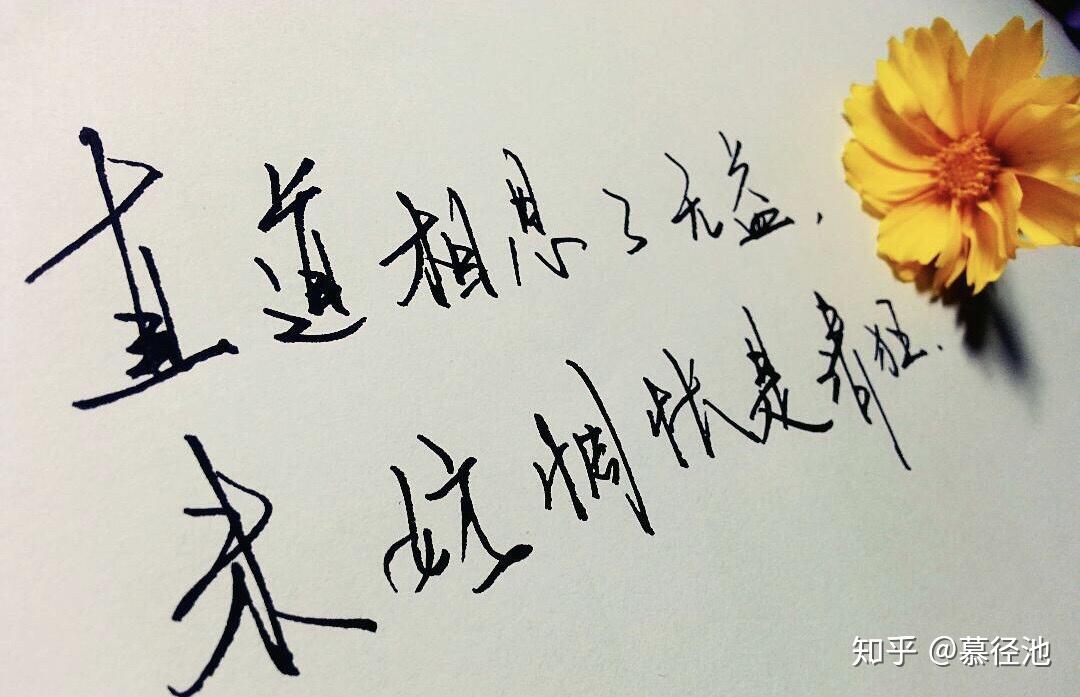 直道相思了无益,
未妨惆怅是清狂.
知乎 @慕径池